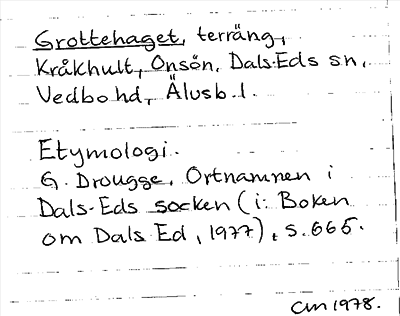 Grottehaget, terräng,
Kråkhult, Onsön, Dals-Eds sn,
Vedbo hd, Älvsb. l.
Etymologi.
G. Drougge, Ortnamnen i
Dals-Eds socken (i: Boken
om Dals Ed, 1977), s. 665.
CM 1978.